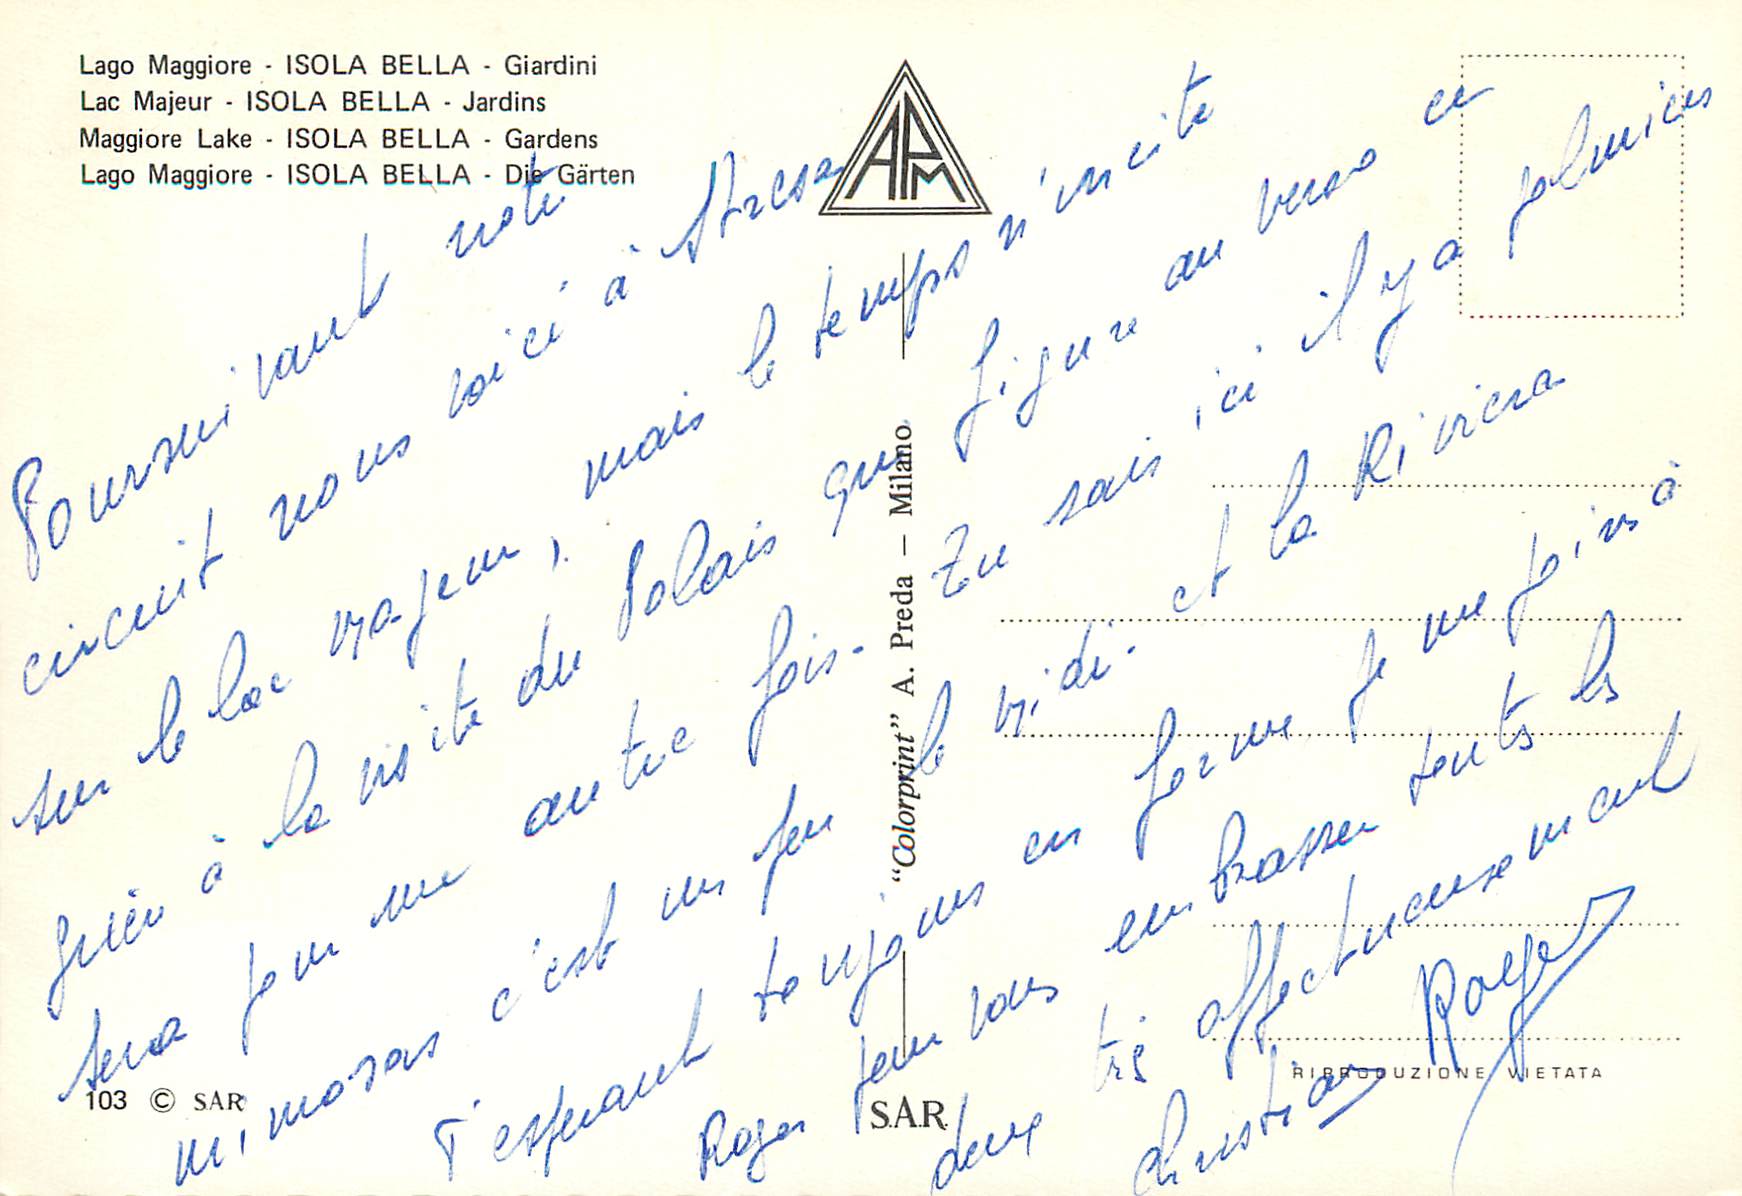 Lago Maggiore - ISOLA BELLA - Giardini
Lac Majeur - ISOLA BELLA - Jardins
Maggiore Lake - ISOLA BELLA - Gardens
Lago Maggiore - ISOLA BELLA - Die Gärten
APM
Poursuivant notre
circuit nous voici à Stresa
sur le lac majeur, mais le temps n'incite
guère à la visite du Palais qui figure au verso ce
sera pour une autre fois - Tu sais ici il y a palmiers
mimosas c'est un peu le midi. et la Riviera
T'espérant toujours en forme je me joins à
Roger pour vous embrasser toutes les
deux très affectueusement
Christian Roger
"Colorprint" A. Preda - Milano
103 © SAR
S.A.R.
RIPRODUZIONE VIETATA